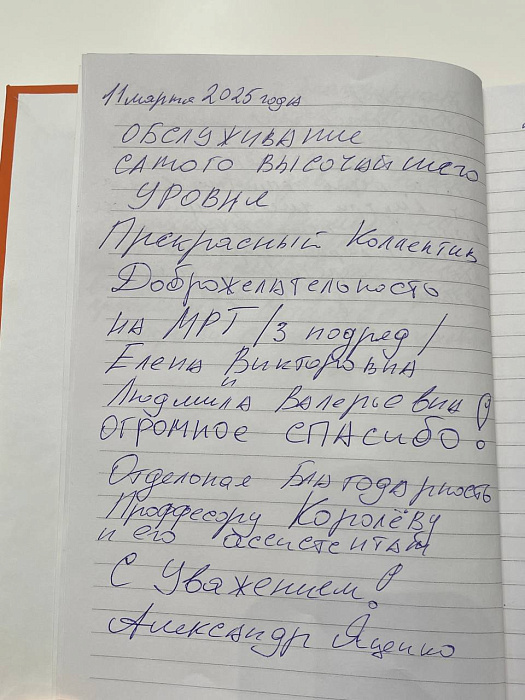 11 марта 2025 года
ОБСЛУЖИВАНИЕ
САМОГО ВЫСОЧАЙШЕГО
УРОВНЯ
Прекрасный Коллектив
Доброжелательность
на МРТ /3 подряд/
Елена Викторовна
и
Людмила Валерьевна!
ОГРОМНОЕ СПАСИБО!
Отдельная Благодарность
Проффесору Королёву
и его ассистентам
С Уважением!
Александр Яценко